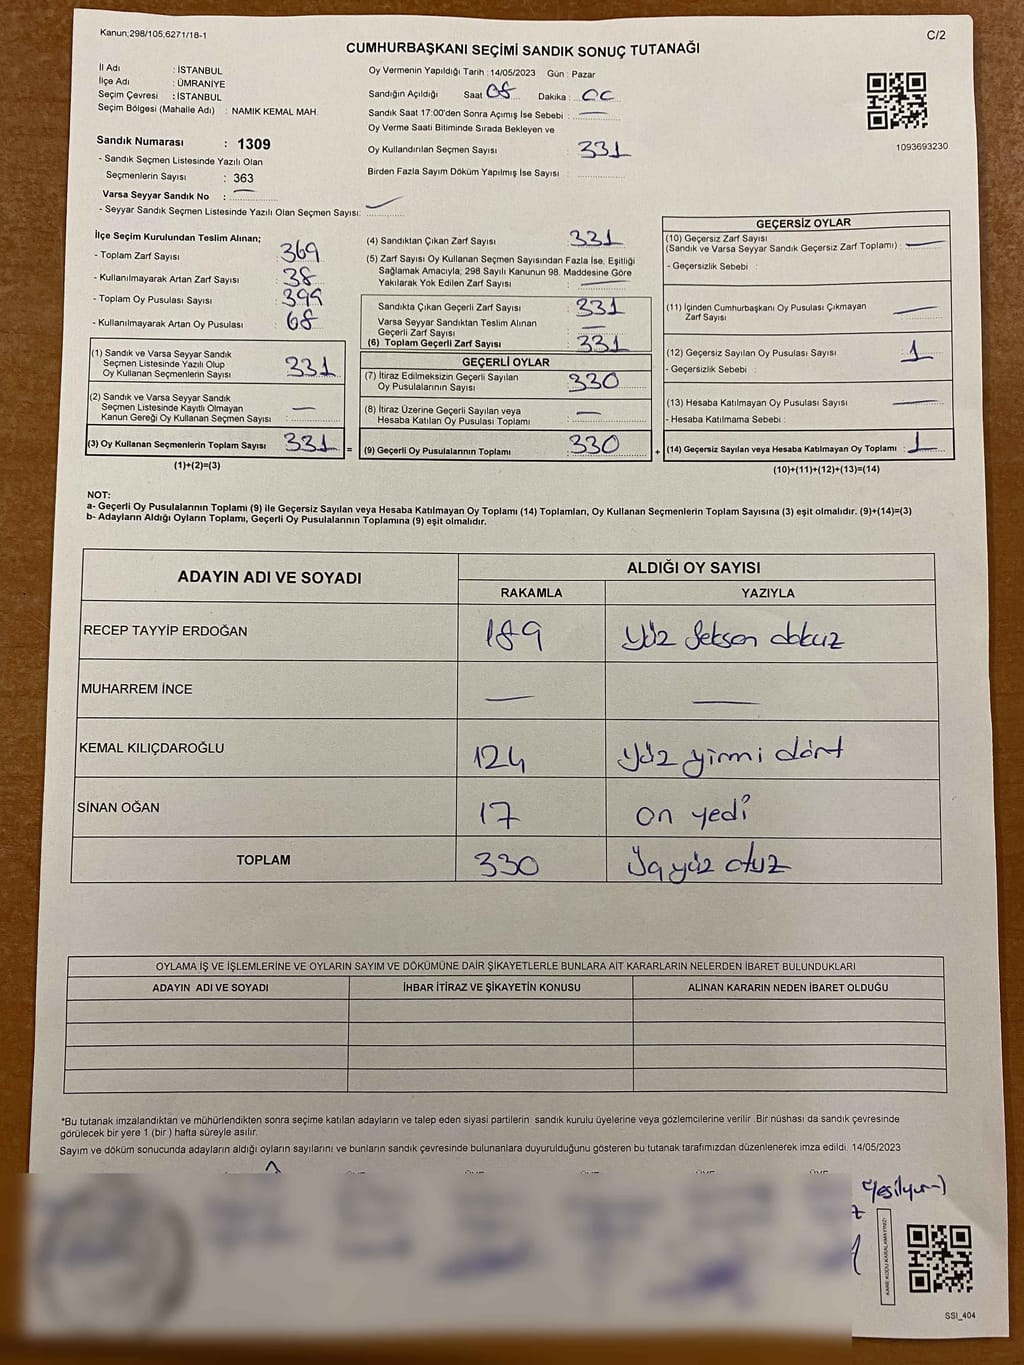 Kanun;298/105,6271/18-1
C/2
CUMHURBAŞKANI SEÇİMİ SANDIK SONUÇ TUTANAĞI
İl Adı : İSTANBUL
İlçe Adı : ÜMRANİYE
Seçim Çevresi : İSTANBUL
Seçim Bölgesi (Mahalle Adı) : NAMIK KEMAL MAH.
Sandık Numarası : 1309
- Sandık Seçmen Listesinde Yazılı Olan
Seçmenlerin Sayısı : 363
Varsa Seyyar Sandık No : —
- Seyyar Sandık Seçmen Listesinde Yazılı Olan Seçmen Sayısı:
Oy Vermenin Yapıldığı Tarih : 14/05/2023 Gün : Pazar
Sandığın Açıldığı Saat 08 Dakika : 00
Sandık Saat 17:00'den Sonra Açımış İse Sebebi : —
Oy Verme Saati Bitiminde Sırada Bekleyen ve
Oy Kullandırılan Seçmen Sayısı : 331
Birden Fazla Sayım Döküm Yapılmış İse Sayısı :
1093693230
İlçe Seçim Kurulundan Teslim Alınan;
- Toplam Zarf Sayısı : 369
- Kullanılmayarak Artan Zarf Sayısı : 38
- Toplam Oy Pusulası Sayısı : 399
- Kullanılmayarak Artan Oy Pusulası : 68
(1) Sandık ve Varsa Seyyar Sandık
Seçmen Listesinde Yazılı Olup
Oy Kullanan Seçmenlerin Sayısı : 331
(2) Sandık ve Varsa Seyyar Sandık
Seçmen Listesinde Kayıtlı Olmayan
Kanun Gereği Oy Kullanan Seçmen Sayısı : —
(3) Oy Kullanan Seçmenlerin Toplam Sayısı : 331
(1)+(2)=(3)
(4) Sandıktan Çıkan Zarf Sayısı : 331
(5) Zarf Sayısı Oy Kullanan Seçmen Sayısından Fazla İse, Eşitliği
Sağlamak Amacıyla; 298 Sayılı Kanunun 98. Maddesine Göre
Yakılarak Yok Edilen Zarf Sayısı : —
Sandıkta Çıkan Geçerli Zarf Sayısı : 331
Varsa Seyyar Sandıktan Teslim Alınan
Geçerli Zarf Sayısı : —
(6) Toplam Geçerli Zarf Sayısı : 331
GEÇERLİ OYLAR
(7) İtiraz Edilmeksizin Geçerli Sayılan
Oy Pusulalarının Sayısı : 330
(8) İtiraz Üzerine Geçerli Sayılan veya
Hesaba Katılan Oy Pusulası Toplamı : —
= (9) Geçerli Oy Pusulalarının Toplamı : 330
GEÇERSİZ OYLAR
(10) Geçersiz Zarf Sayısı
(Sandık ve Varsa Seyyar Sandık Geçersiz Zarf Toplamı) : —
- Geçersizlik Sebebi :
(11) İçinden Cumhurbaşkanı Oy Pusulası Çıkmayan
Zarf Sayısı : —
(12) Geçersiz Sayılan Oy Pusulası Sayısı : 1
- Geçersizlik Sebebi :
(13) Hesaba Katılmayan Oy Pusulası Sayısı : —
- Hesaba Katılmama Sebebi :
+ (14) Geçersiz Sayılan veya Hesaba Katılmayan Oy Toplamı : 1
(10)+(11)+(12)+(13)=(14)
NOT:
a- Geçerli Oy Pusulalarının Toplamı (9) ile Geçersiz Sayılan veya Hesaba Katılmayan Oy Toplamı (14) Toplamları, Oy Kullanan Seçmenlerin Toplam Sayısına (3) eşit olmalıdır. (9)+(14)=(3)
b- Adayların Aldığı Oyların Toplamı, Geçerli Oy Pusulalarının Toplamına (9) eşit olmalıdır.
ADAYIN ADI VE SOYADI ALDIĞI OY SAYISI
RAKAMLA YAZIYLA
RECEP TAYYİP ERDOĞAN 189 Yüz Seksen dokuz
MUHARREM İNCE — —
KEMAL KILIÇDAROĞLU 124 Yüz yirmi dört
SİNAN OĞAN 17 on yedi
TOPLAM 330 Üç yüz otuz
OYLAMA İŞ VE İŞLEMLERİNE VE OYLARIN SAYIM VE DÖKÜMÜNE DAİR ŞİKAYETLERLE BUNLARA AİT KARARLARIN NELERDEN İBARET BULUNDUKLARI
ADAYIN ADI VE SOYADI İHBAR İTİRAZ VE ŞİKAYETİN KONUSU ALINAN KARARIN NEDEN İBARET OLDUĞU
*Bu tutanak imzalandıktan ve mühürlendikten sonra seçime katılan adayların ve talep eden siyasi partilerin sandık kurulu üyelerine veya gözlemcilerine verilir. Bir nüshası da sandık çevresinde
görülecek bir yere 1 (bir ) hafta süreyle asılır.
Sayım ve döküm sonucunda adayların aldığı oyların sayılarını ve bunların sandık çevresinde bulunanlara duyurulduğunu gösteren bu tutanak tarafımızdan düzenlenerek imza edildi. 14/05/2023
KARE KODU KARALAMAYINIZ!
SSI_404